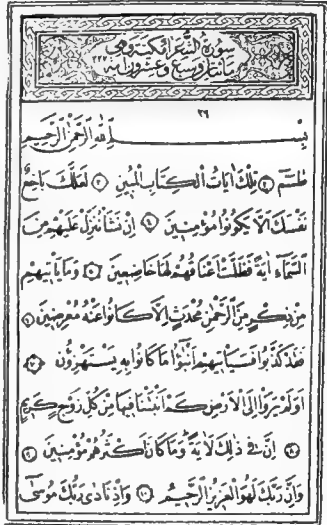 سورة الشعراء مكية وهي
مائتان وسبع وعشرون آية ٢٢٧
٢٦
بسم الله الرحمن الرحيم
طسم تلك ايات الكتاب المبين لعلك باخع
نفسك الا يكونوا مؤمنين ان نشأ ننزل عليهم من
السماء اية فظلت اعناقهم لها خاضعين وما يأتيهم
من ذكر من الرحمن محدث الا كانوا عنه معرضين
فقد كذبوا فسيأتيهم انبؤا ما كانوا به يستهزؤن
اولم يروا الى الارض كم انبتنا فيها من كل زوج كريم
ان في ذلك لاية وما كان اكثرهم مؤمنين
وان ربك لهو العزيز الرحيم واذ نادى ربك موسى